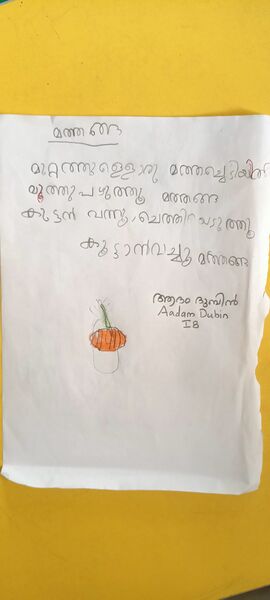 മത്തങ്ങ
മുറ്റത്തുള്ളൊരു മത്തച്ചെടിയിൽ
മൂത്തു പഴുത്തൂ മത്തങ്ങ
കുട്ടൻ വന്നൂ,
കൂട്ടാൻവച്ചൂ മത്തങ്ങ
ആദം ദുബിൻ
Aadam Dubin
IB